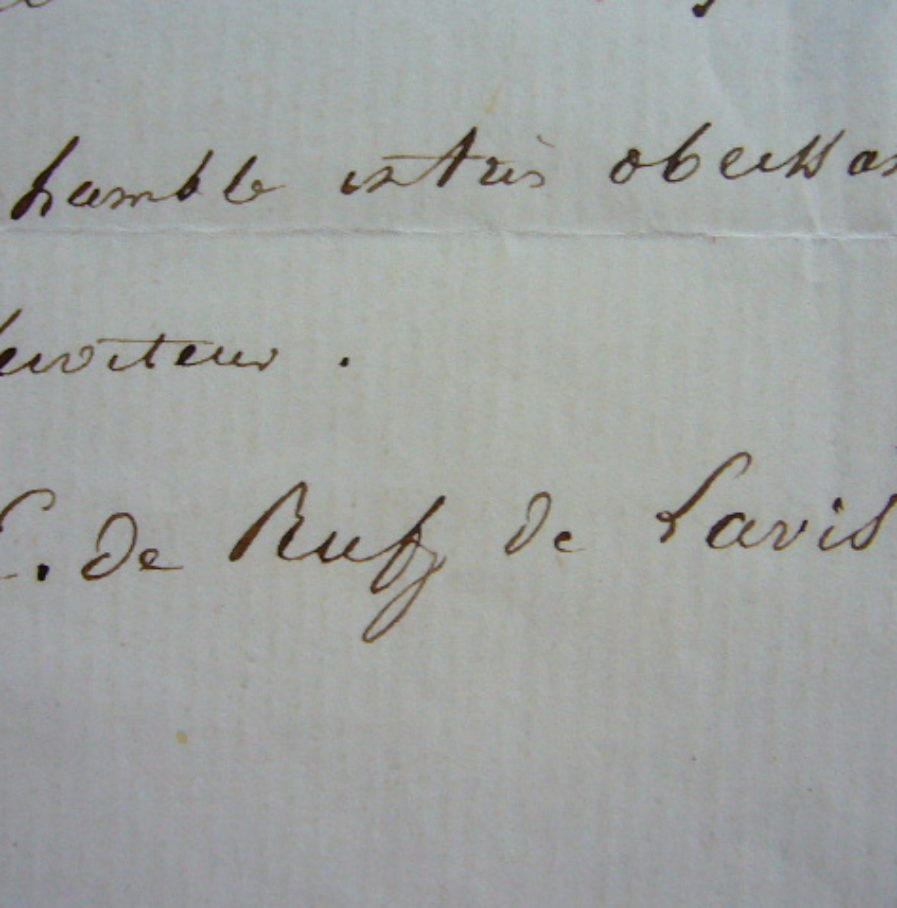 humble et très obeissan
serviteur .
C. de Rufz de Lavis